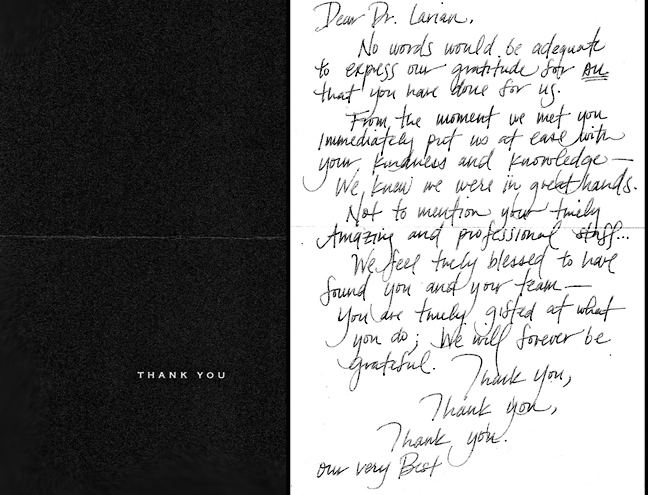 THANK YOU
Dear Dr. Larian,
No words would be adequate
to express our gratitude for All
that you have done for us.
From the moment we met you
immediately put us at ease with
your kindness and knowledge—
We knew we were in great hands.
Not to mention your truely
Amazing and professional staff...
We feel truely blessed to have
found you and your team—
You are truely gifted at what
you do; We will forever be
grateful.
Thank you,
Thank you,
Thank you.
our very Best